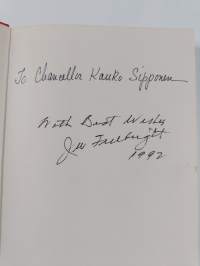 To Chancellor Kauko Sipponen
With Best Wishes
1992